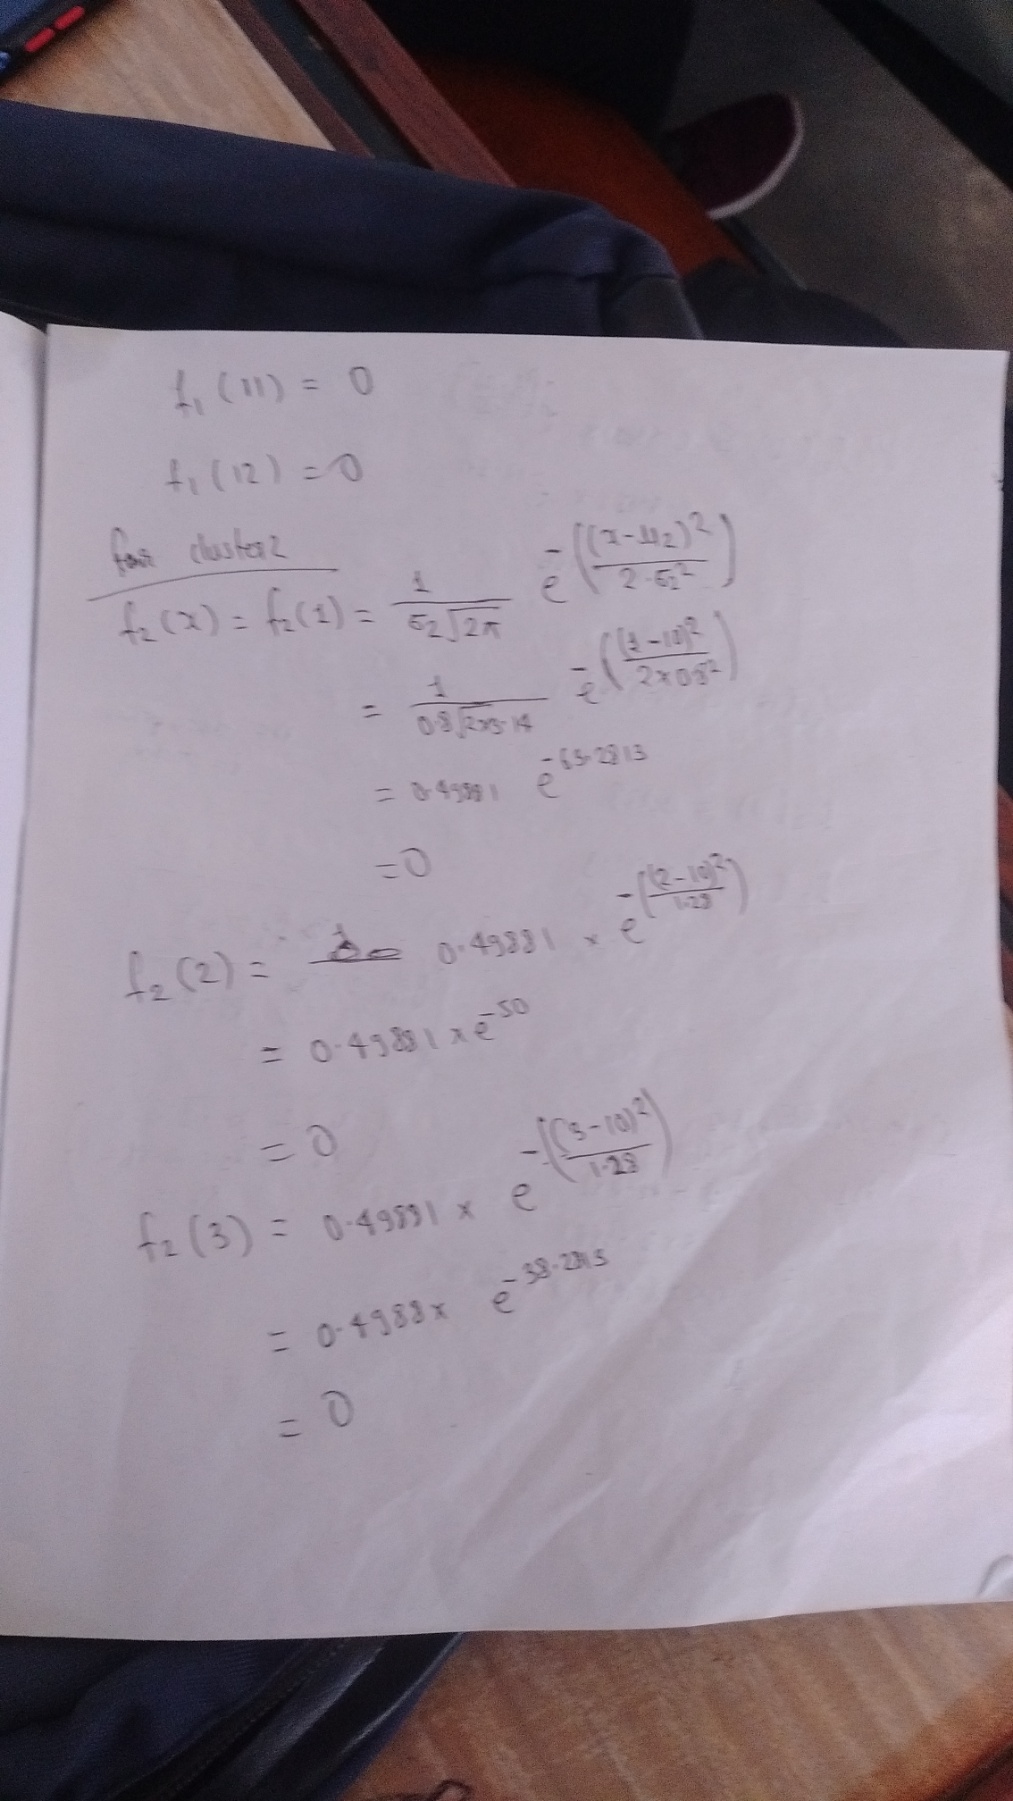 f₁(11) = 0
f₁(12) = 0
for cluster2
f₂(x) = f₂(1) = 1/(σ₂√2π) e^-((x-μ₂)²/(2·σ₂²))
= 1/(0.8√2×3.14) e^-((1-10)²/(2×0.8²))
= 0.49881 e^-63.2813
= 0
f₂(2) = 0.49881 × e^-((2-10)²/1.28)
= 0.49881 × e^-50
= 0
f₂(3) = 0.49881 × e^-((3-10)²/1.28)
= 0.4988 × e^-38.2813
= 0